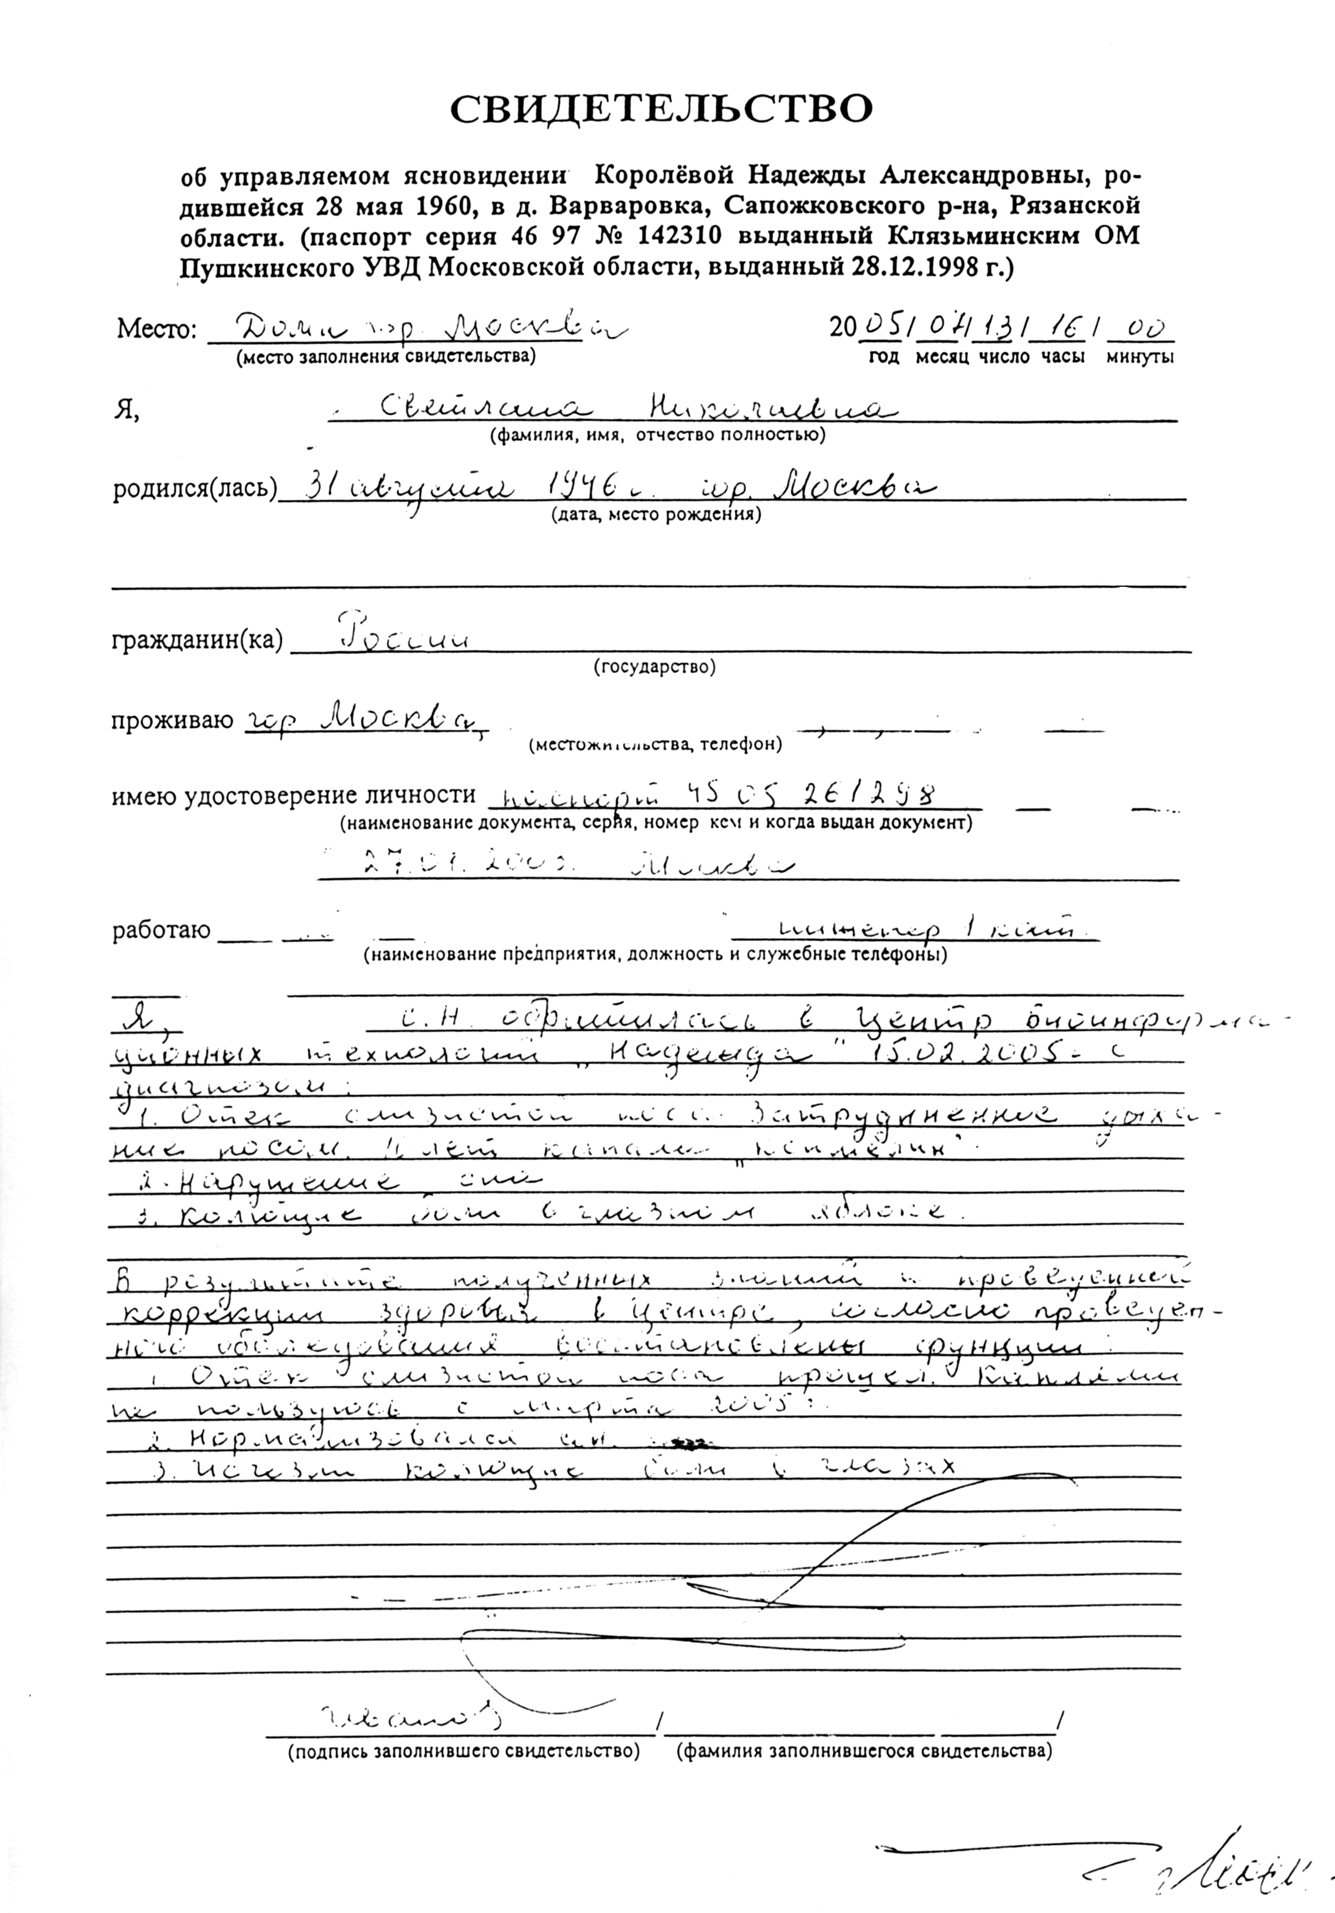 СВИДЕТЕЛЬСТВО
об управляемом ясновидении Королёвой Надежды Александровны, ро-
дившейся 28 мая 1960, в д. Варваровка, Сапожковского р-на, Рязанской
области. (паспорт серия 46 97 № 142310 выданный Клязьминским ОМ
Пушкинского УВД Московской области, выданный 28.12.1998 г.)
Место: гор. Москва 20 05/04/13/16/00
(место заполнения свидетельства) год месяц число часы минуты
Я, Светлана Николаевна
(фамилия, имя, отчество полностью)
родился(лась) 31 августа 1946 г. гор. Москва
(дата, место рождения)
гражданин(ка) России
(государство)
проживаю гор Москва,
(местожительства, телефон)
имею удостоверение личности паспорт 45 05 261298
(наименование документа, серия, номер кем и когда выдан документ)
Москва
работаю инженер 1 кат.
(наименование предприятия, должность и служебные телефоны)
Я, С.Н. обратилась в Центр биоинформа-
ционных технологий „Надежда" 15.02.2005 г. с
диагнозом:
1. Отек слизистой носа. Затрудненние дыха-
ние носом. лет капала
2. Нарушение сна
3. Колющие боли в глазном яблоке.
В результате полученных знаний и проведенной
коррекции здоровья в Центре, согласно проведен-
ного обследования восстановлены функции:
1. Отек слизистой носа прошел. Каплями
не пользуюсь с марта 2005 г.
2. Нормализовался сон.
3. Исчезли колющие боли в глазах
(подпись заполнившего свидетельство) / (фамилия заполнившегося свидетельства) /